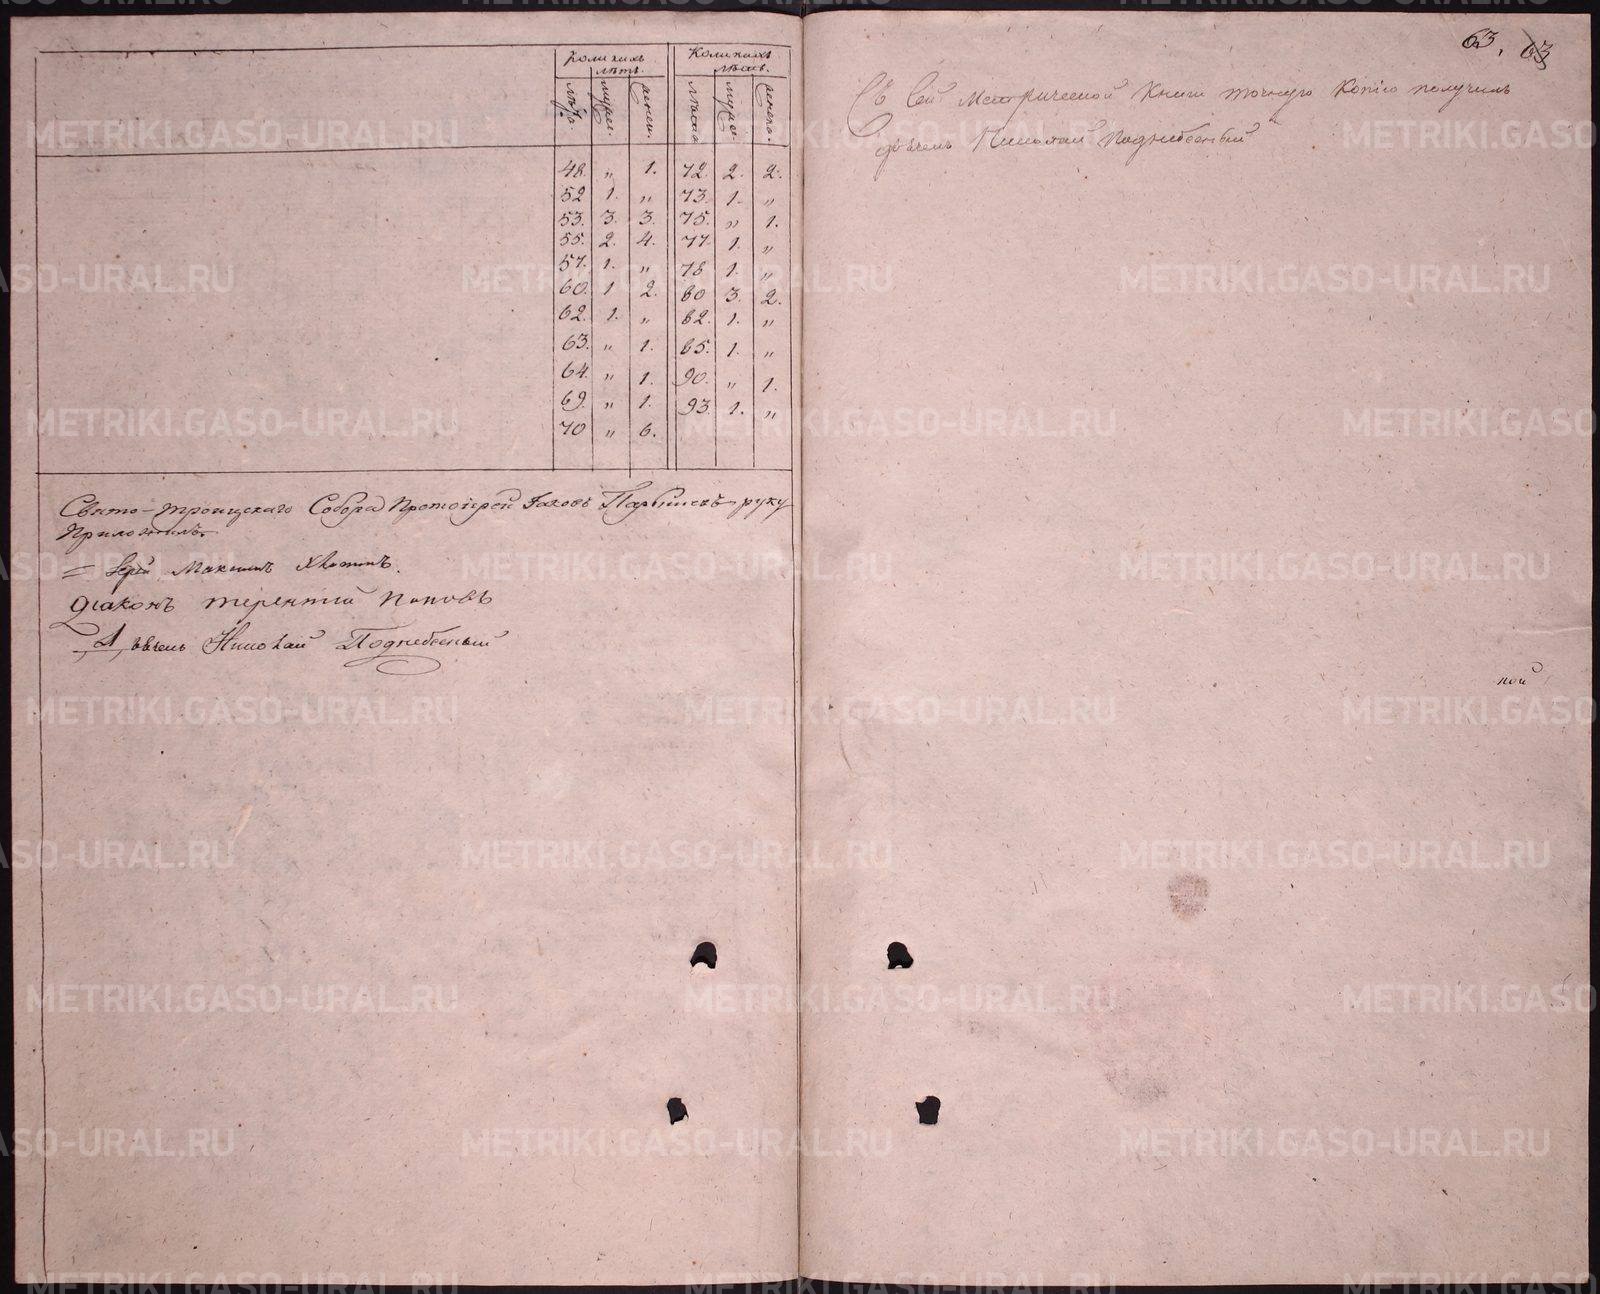 Коликихъ лѣтъ. Коликихъ лѣтъ.
48. „ 1. 72. 2. 2.
52 1. „ 73. 1. „
53. 3. 3. 75. „ 1.
55. 2. 4. 77. 1. „
57. 1. „ 78 1. „
60. 1 2. 80 3. 2.
62. 1. „ 82. 1. „
63. „ 1. 85. 1. „
64. „ 1. 90. „ 1.
69. „ 1. 93. 1. „
70 „ 6.
Свято-Троицкаго Собора Протоіерей Іаковъ руку
Приложилъ.
Іерей Максимъ
Діаконъ Терентій Поповъ
Дьячекъ Николай Поднебесный
63. 63
Съ сей Метрической Книги точную Копію получилъ
дьячекъ Николай Поднебесный
METRIKI.GASO-URAL.RU